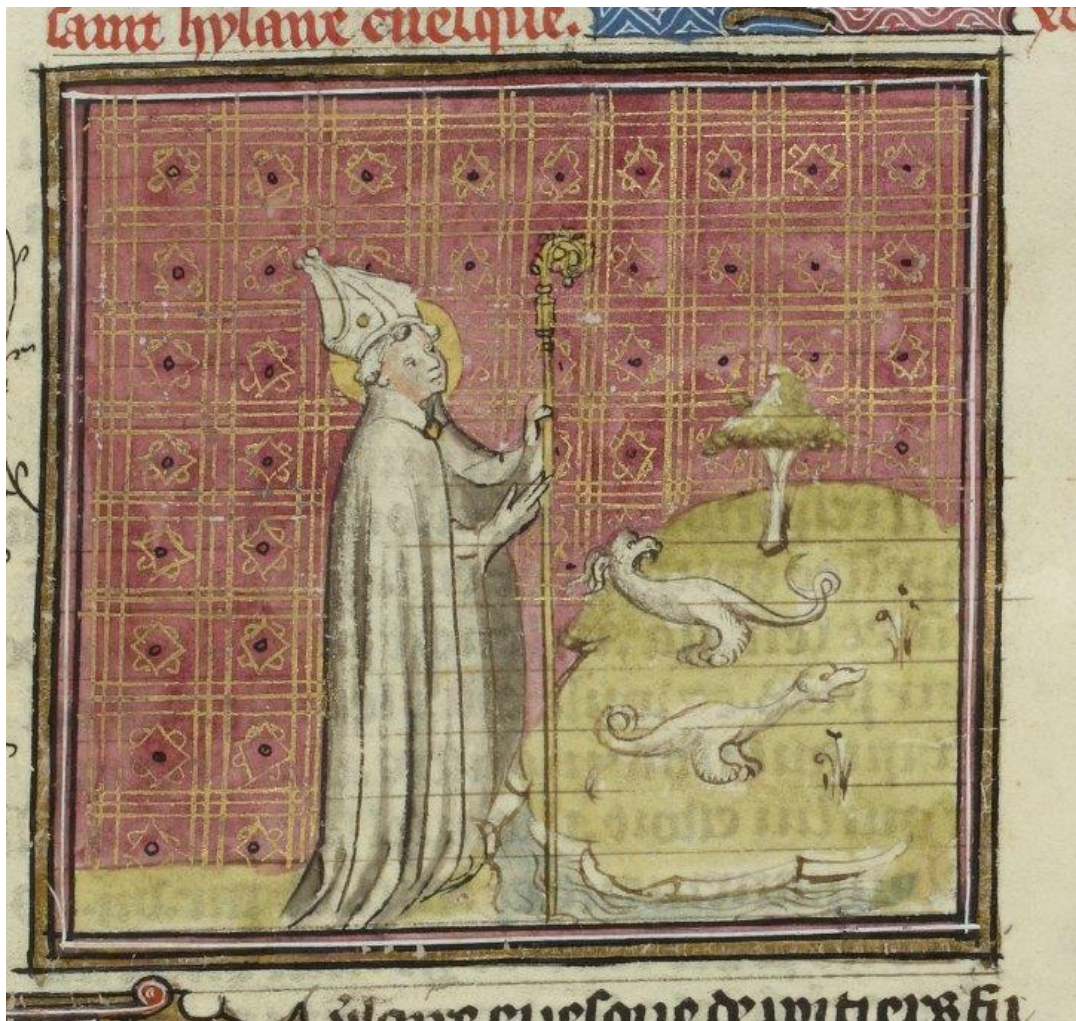 saint hylaire euesque.
ylaire euesque de poitiers fu